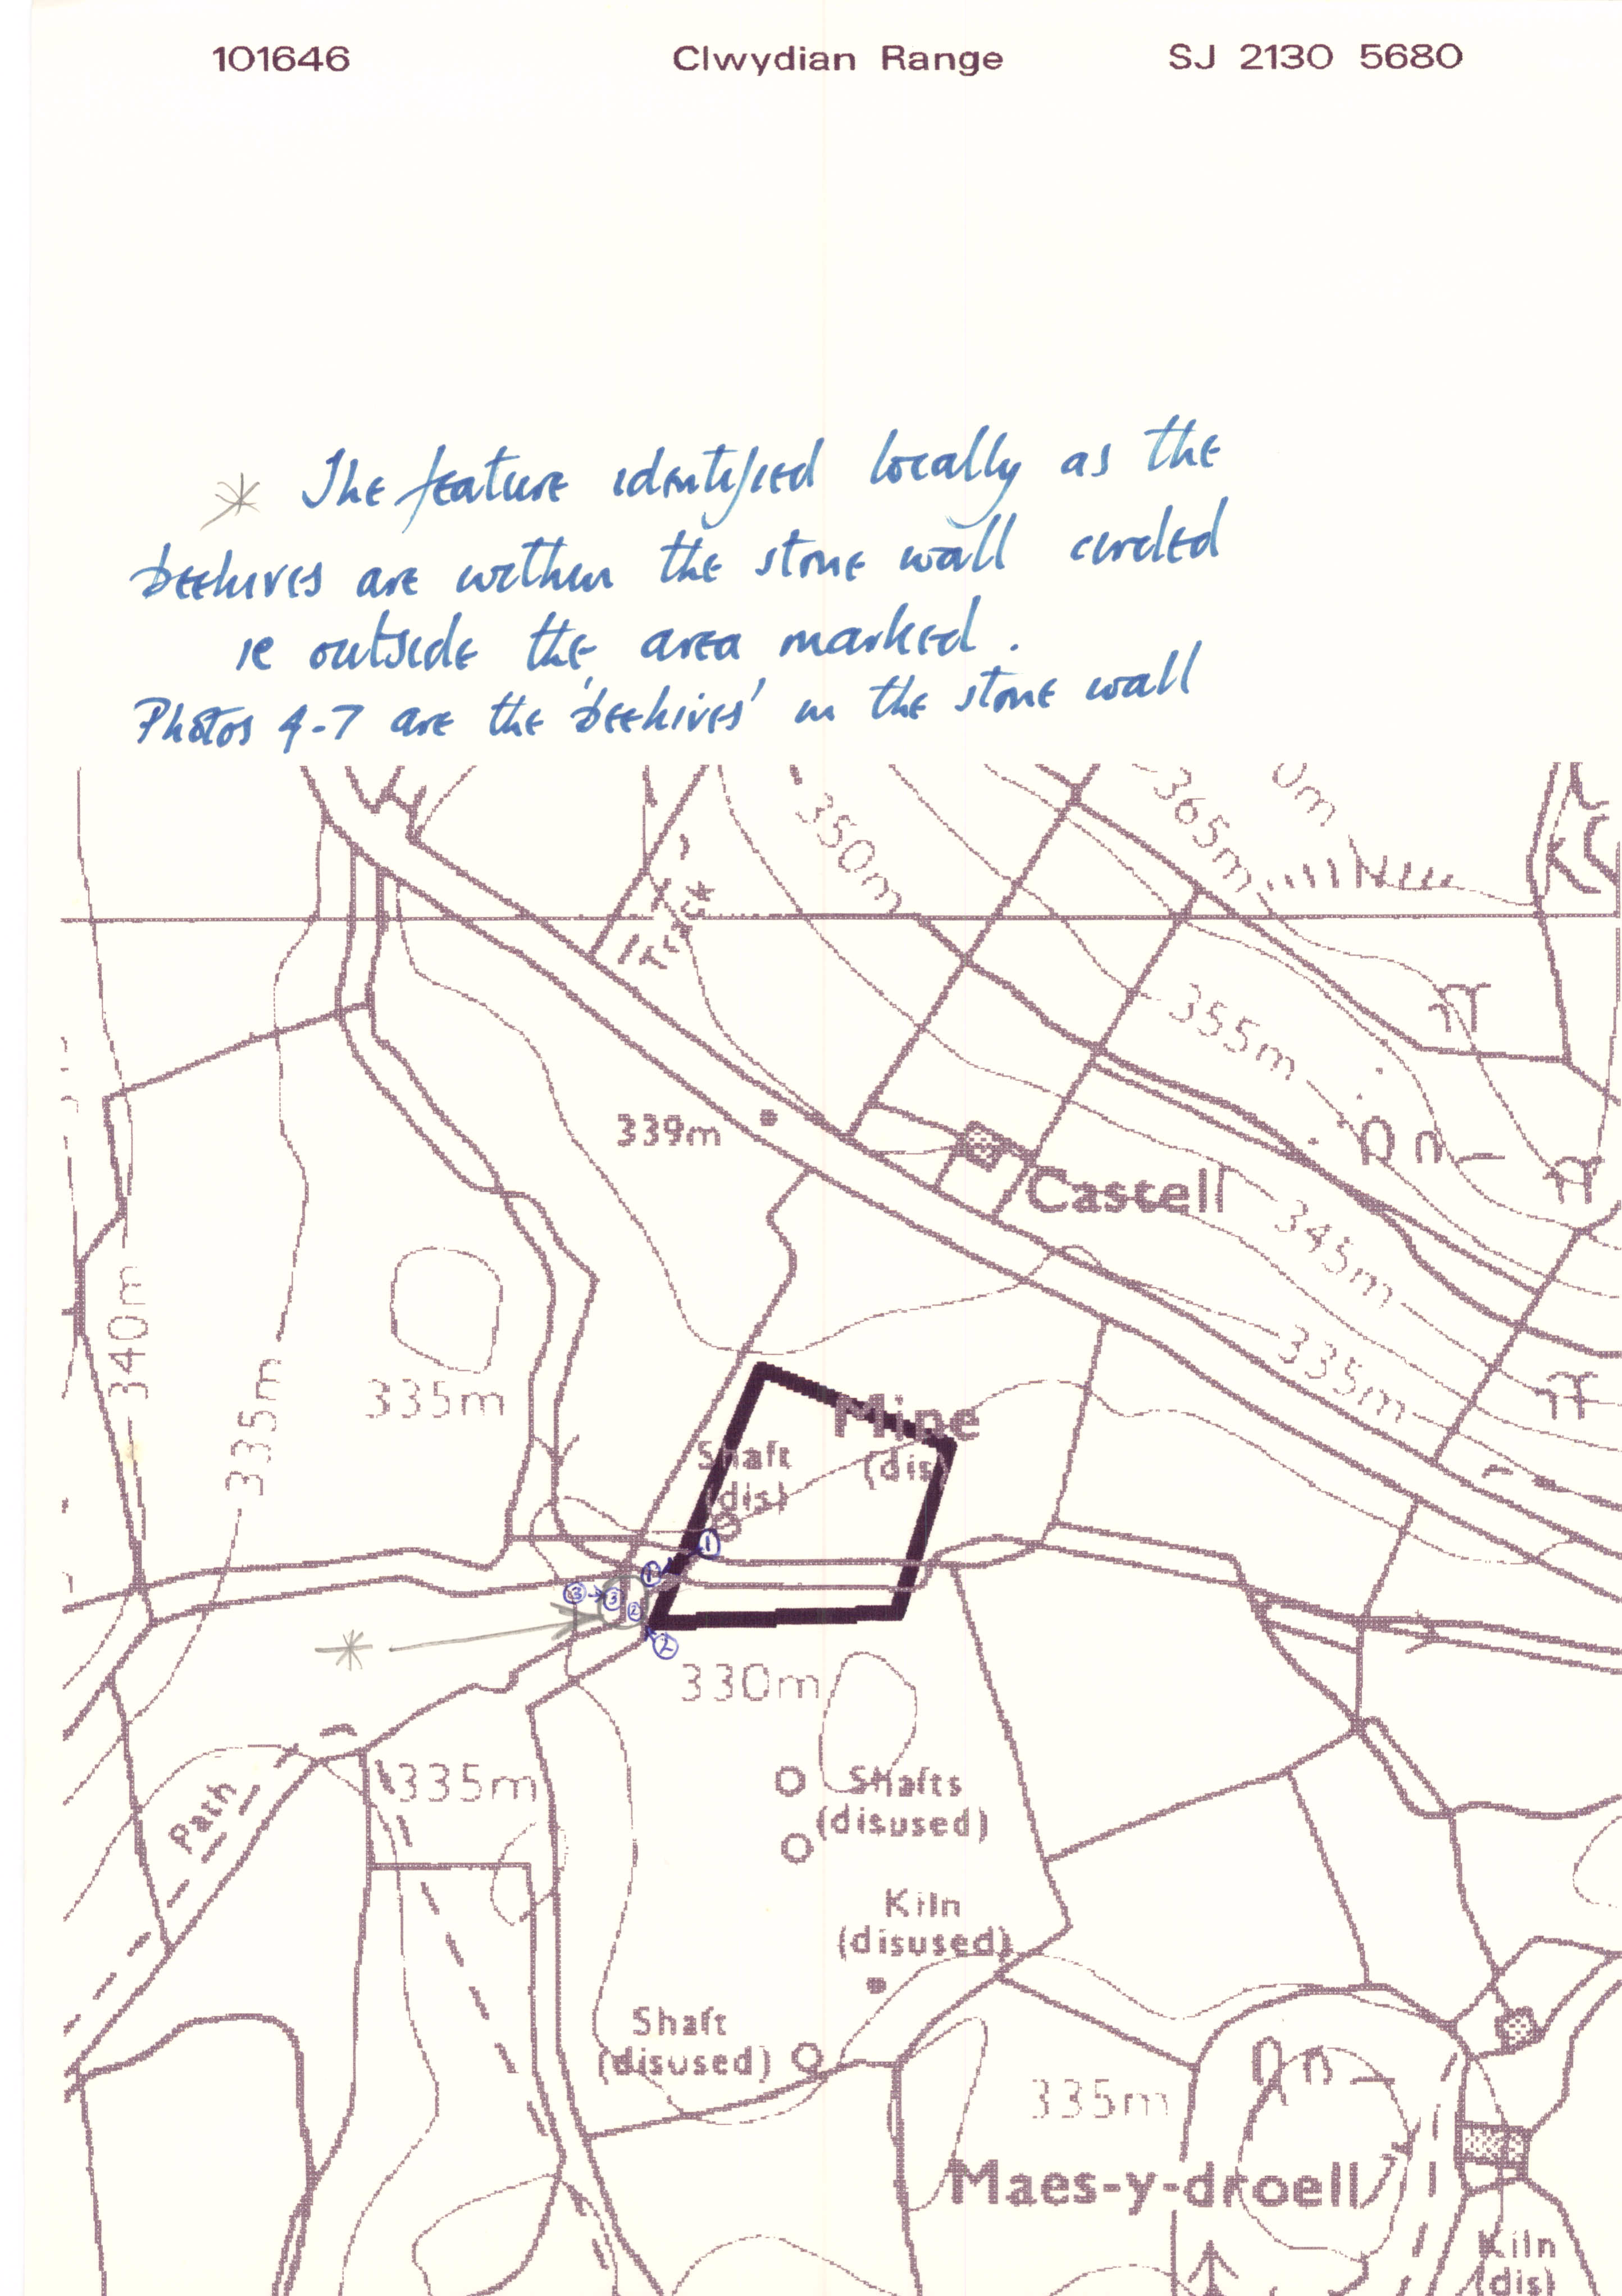 101646 Clwydian Range SJ 2130 5680
* The feature identified locally as the
beehives are within the stone wall circled
ie outside the area marked.
Photos 4-7 are the 'beehives' in the stone wall
350m
365m
0m
Track
355m
339m
Castell
345m
340m
335m
335m
335m
Mine
(dis)
Shaft
(dis)
1
1
3 3
2
*
2
330m
Path
335m
Shafts
(disused)
Kiln
(disused)
Shaft
(disused)
335m
Maes-y-droell
Kiln
(dis)